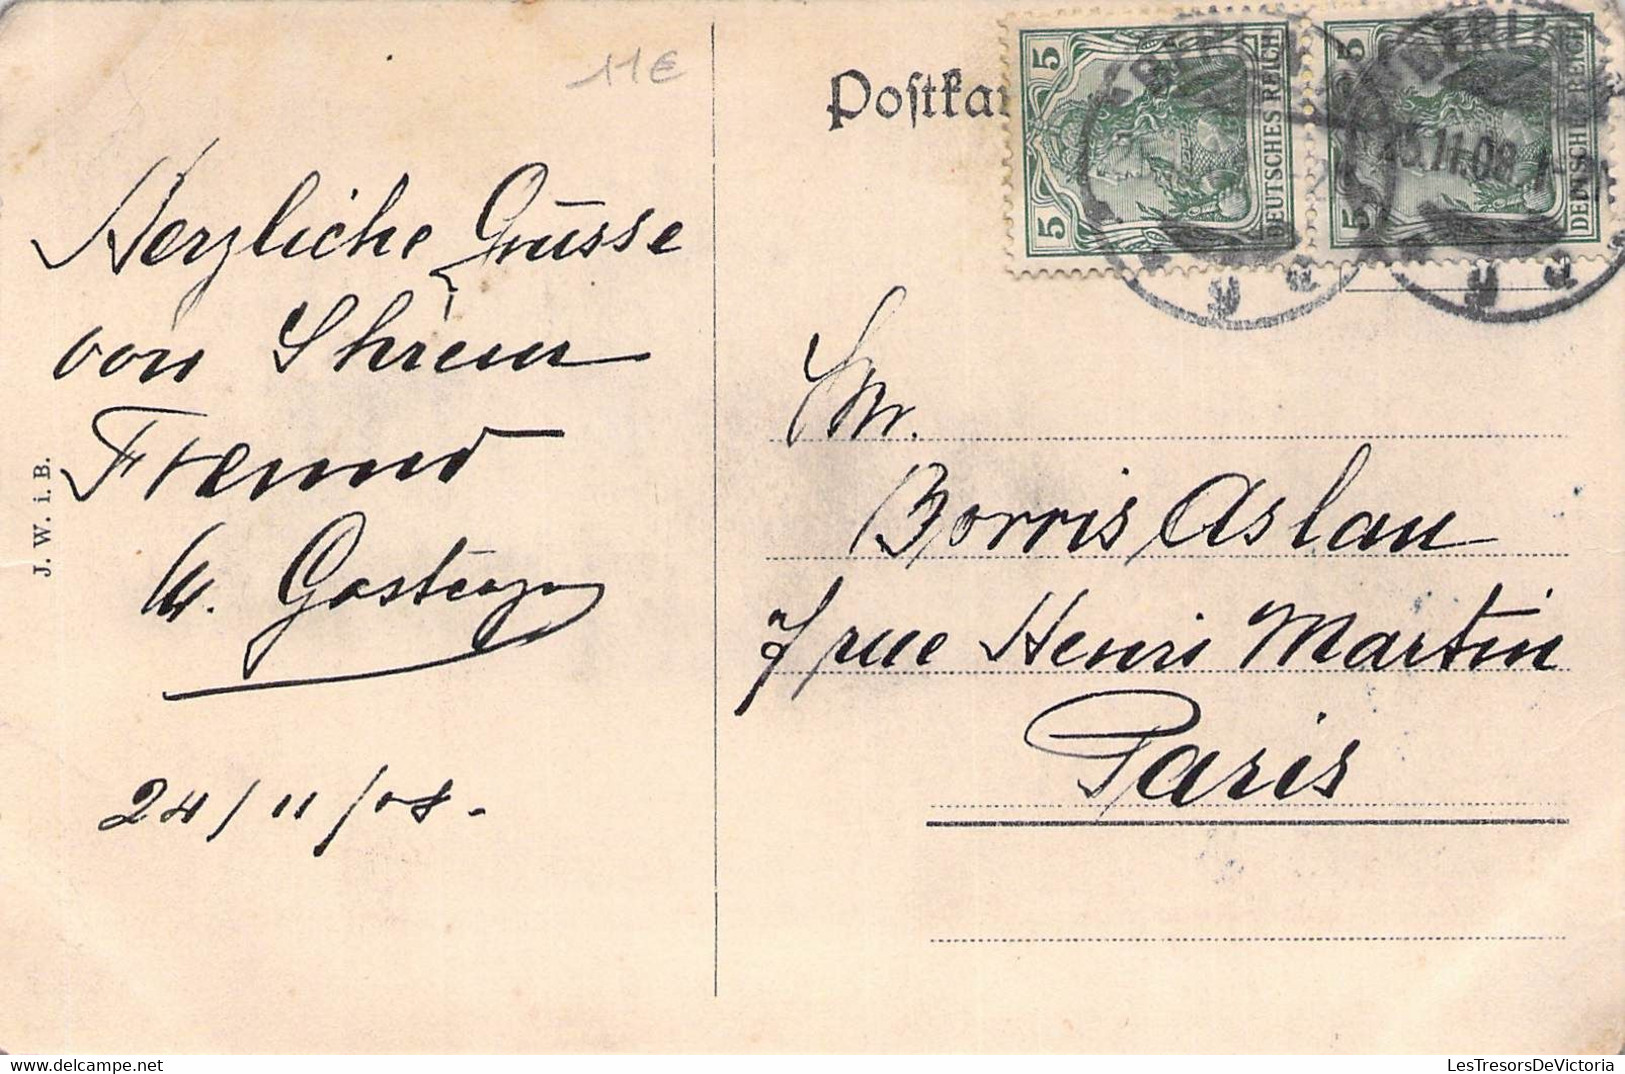 11€
Postkar
5 DEUTSCHES REICH 5
5 DEUTSCHES REICH 5
BERLIN
BERLIN
25.11.08. 1-2
Herzliche Grüsse
von Ihrem
Freund
24/11/08.
J. W. i. B.
Borris Aslan
7 rue Henri Martin
Paris
LesTresorsDeVictoria